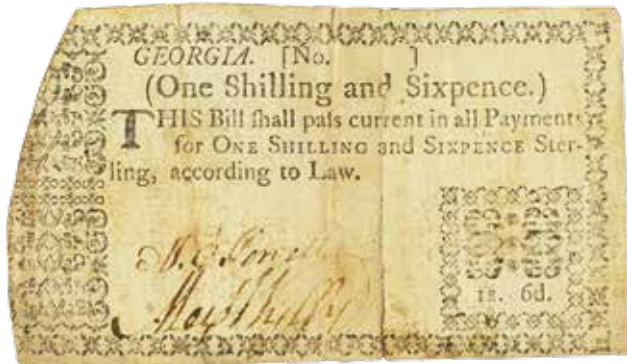 GEORGIA. [No. ]
(One Shilling and Sixpence.)
THIS Bill ſhall paſs current in all Payments
for ONE SHILLING and SIXPENCE Ster-
ling, according to Law.
1s. 6d.